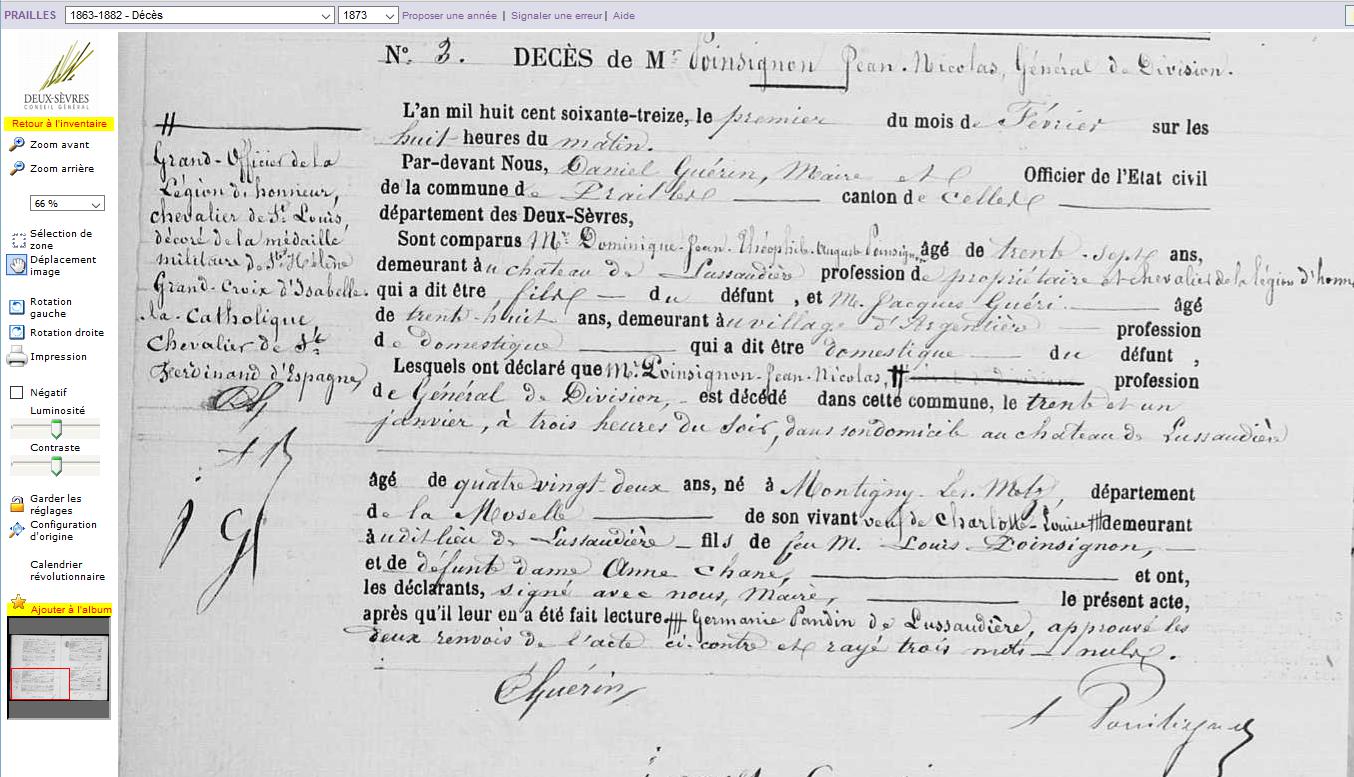 PRAILLES 1863-1882 - Décès 1873 Proposer une année | Signaler une erreur | Aide
DEUX-SÈVRES
CONSEIL GÉNÉRAL
Retour à l'inventaire
Zoom avant
Zoom arrière
66 %
Sélection de
zone
Déplacement
image
Rotation
gauche
Rotation droite
Impression
Négatif
Luminosité
Contraste
Garder les
réglages
Configuration
d'origine
Calendrier
révolutionnaire
Ajouter à l'album
N° 3. DECÈS de Mr Poinsignon Jean-Nicolas, Général de Division.
L'an mil huit cent soixante-treize, le premier du mois de Février sur les
huit heures du matin.
Par-devant Nous, Daniel Guérin, Maire et Officier de l'Etat civil
de la commune de Prailles canton de Celles
département des Deux-Sèvres,
Sont comparus Mr Dominique-Jean-Théophile-Auguste Poinsignon, âgé de trente-sept ans,
demeurant au chateau de Lussaudière profession de propriétaire et chevalier de la légion d'honn
qui a dit être fils du défunt, et M. Jacques Guéri âgé
de trente-huit ans, demeurant au village d'Argentière profession
de domestique qui a dit être domestique du défunt,
Lesquels ont déclaré que Mr Poinsignon-Jean-Nicolas, # profession
de Général de Division, est décédé dans cette commune, le trente et un
janvier, à trois heures du soir, dans son domicile au chateau de Lussaudière
âgé de quatre vingt-deux ans, né à Montigny-lès-Metz, département
de la Moselle de son vivant veuf de Charlotte-Louise # demeurant
audit lieu de Lussaudière fils de feu M. Louis Poinsignon,
et de défunte dame Anne Chane, et ont,
les déclarants, signé avec nous, Maire, le présent acte,
après qu'il leur en a été fait lecture # Germanie Pandin de Lussaudière, approuvé les
deux renvois de l'acte ci-contre et rayé trois mots nuls.
Guérin
#
Grand-Officier de la
Légion d'honneur,
chevalier de St Louis
décoré de la médaille
militaire de Ste Hélène
Grand-Croix d'Isabelle
la-Catholique
Chevalier de St
Ferdinand d'Espagne,